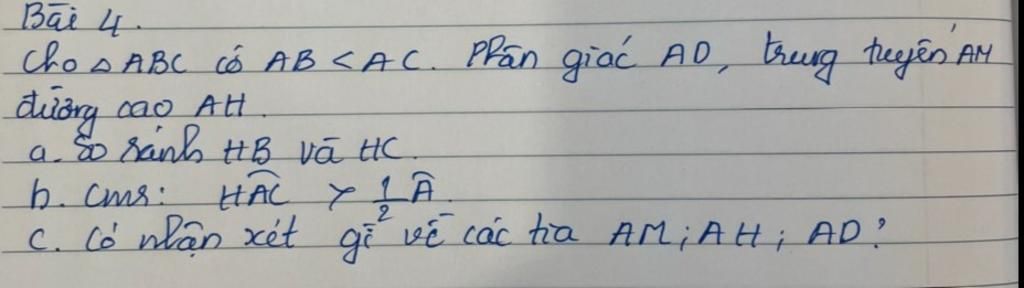 Bài 4.
Cho △ABC có AB < AC. Phân giác AD, trung tuyến AM
đường cao AH.
a. So sánh HB và HC.
b. CMR: HAC > 1/2 Â.
c. Có nhận xét gì về các tia AM; AH; AD?